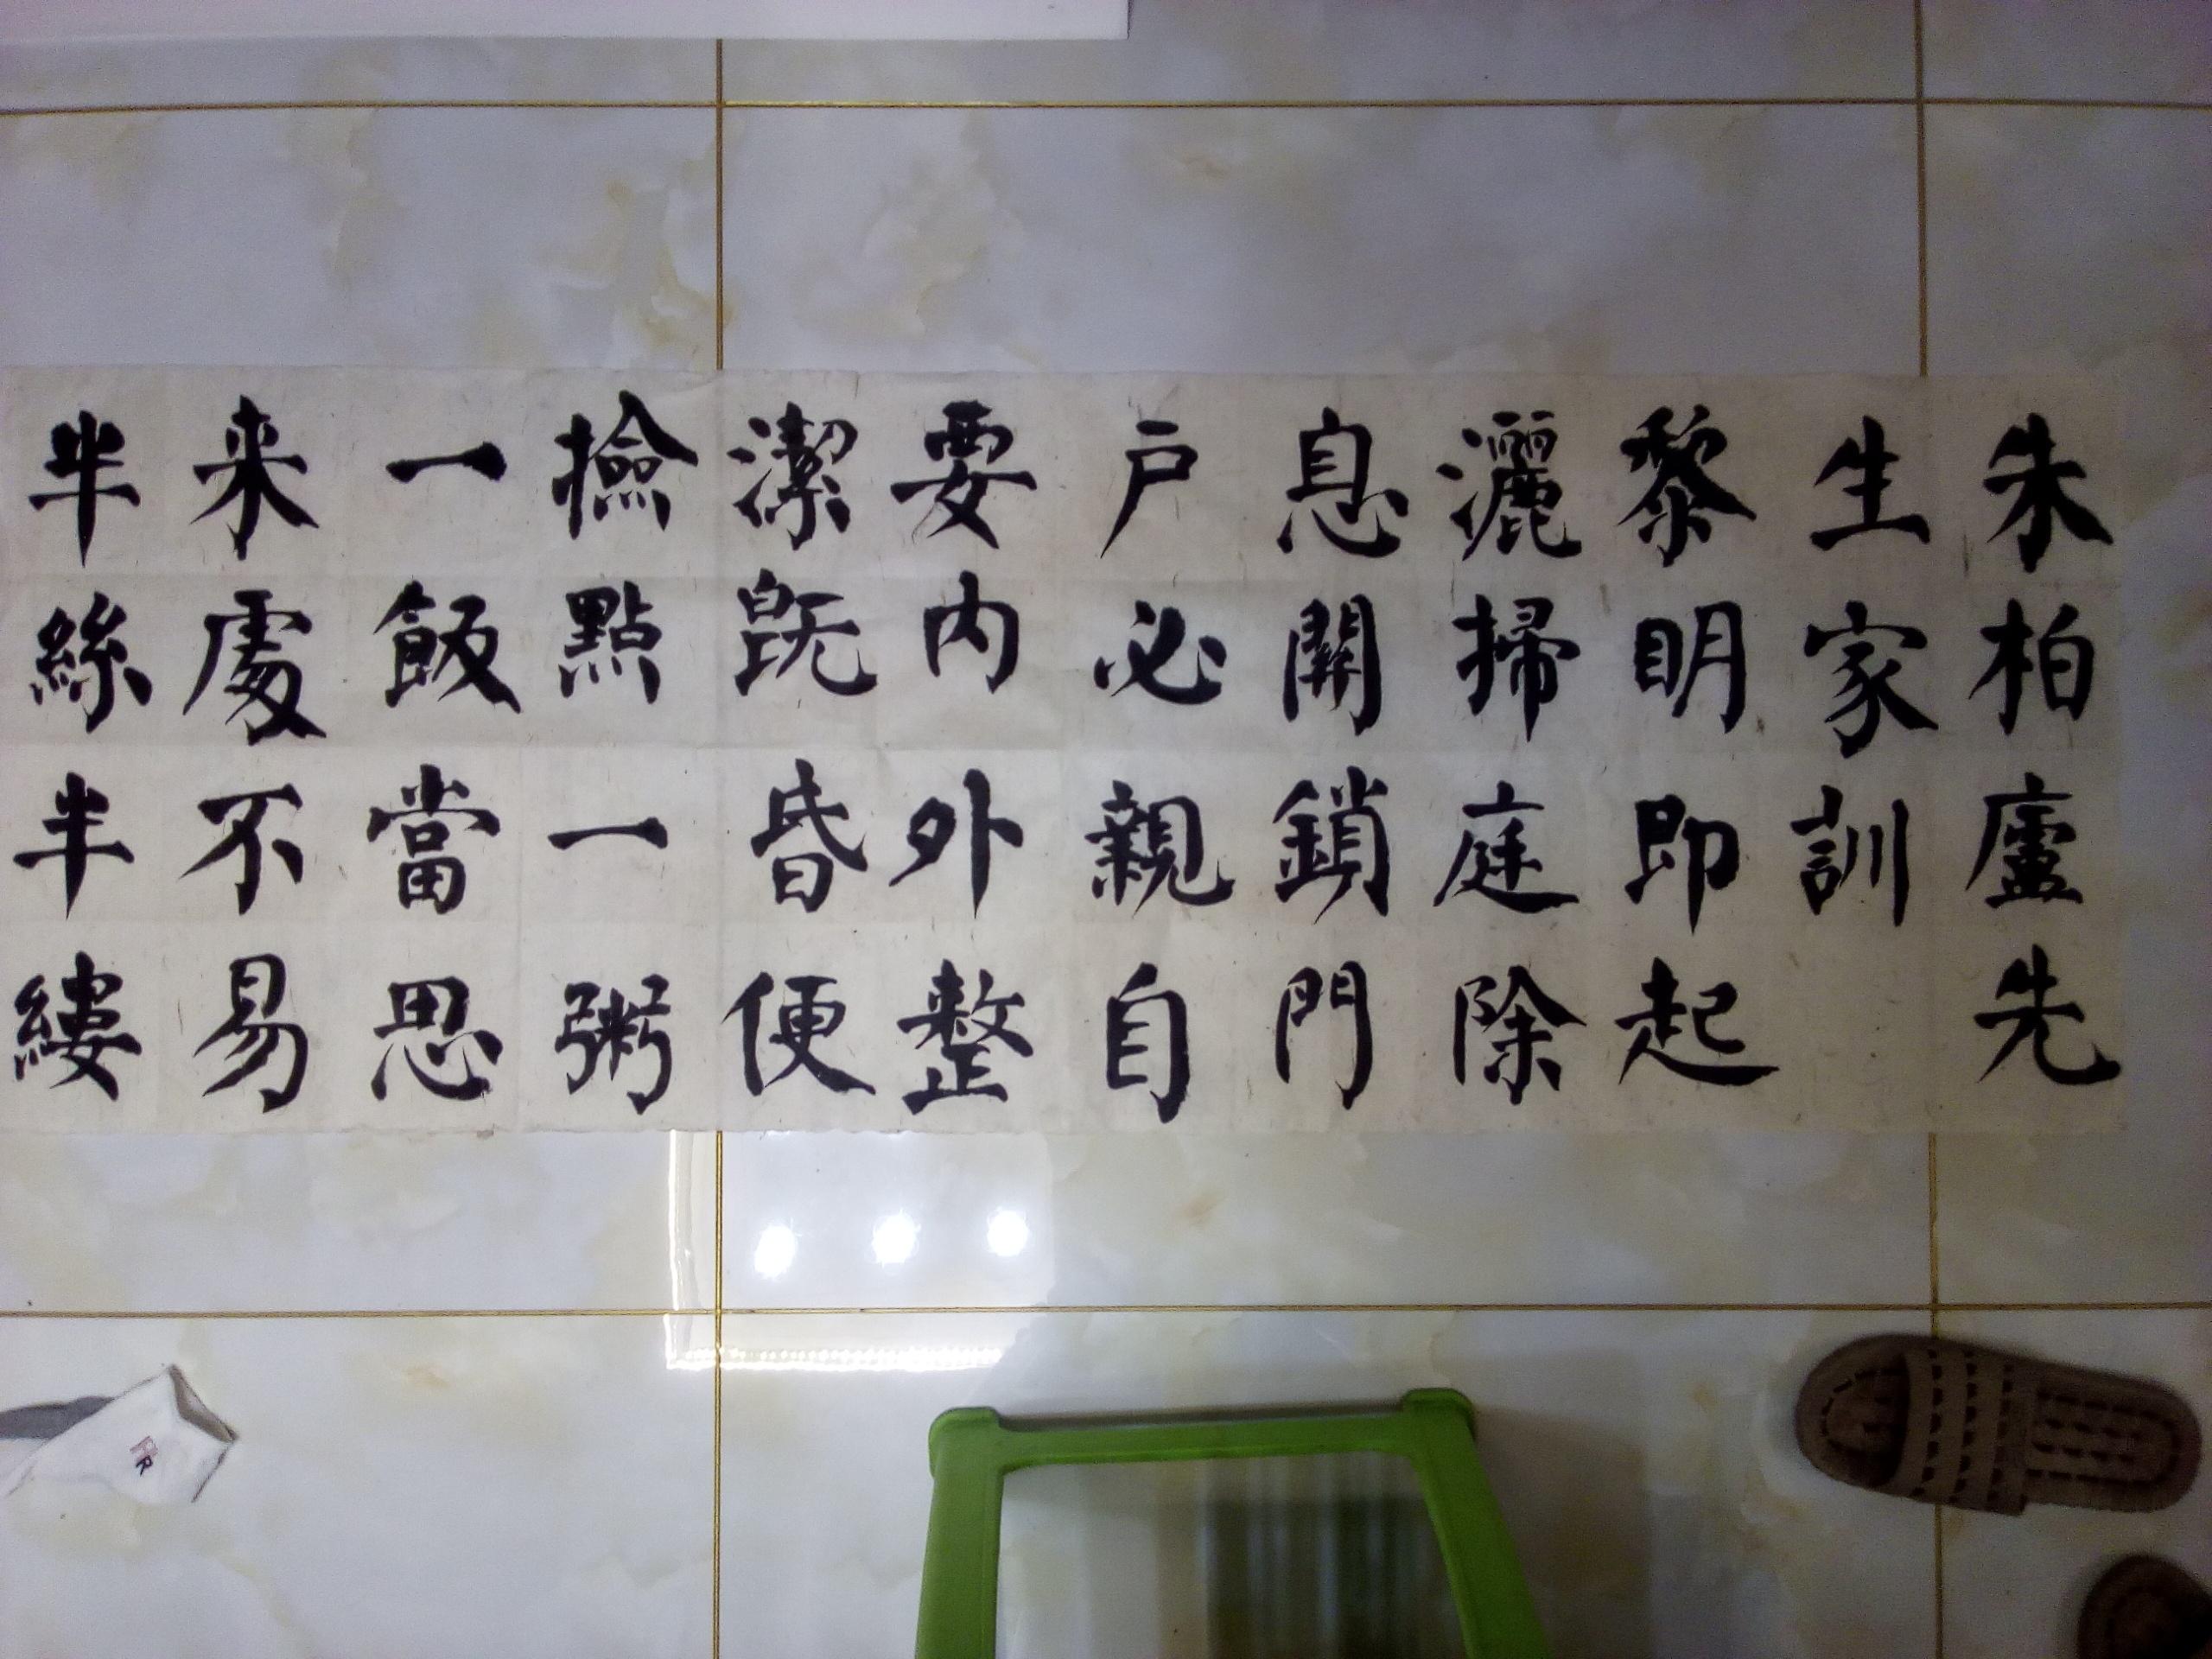 朱柏廬先
生家訓
黎明即起
灑掃庭除
息關鎖門
户必親自
要内外整
潔既昏便
撿點一粥
一飯當思
来處不易
半絲半縷